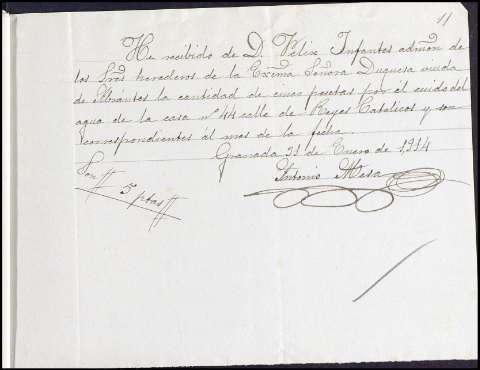 11
He recibido de D. Felix Infantes admon de
los Sres herederos de la Excma Señora Duquesa viuda
de Abrantes la cantidad de cinco pesetas por el cuido del
agua de la casa nº 44 calle de Reyes Catolicos y son
correspondientes ál mes de la fecha.
Granada 31 de Enero de 1,914
Antonio Mesa
Son # 5 ptas #